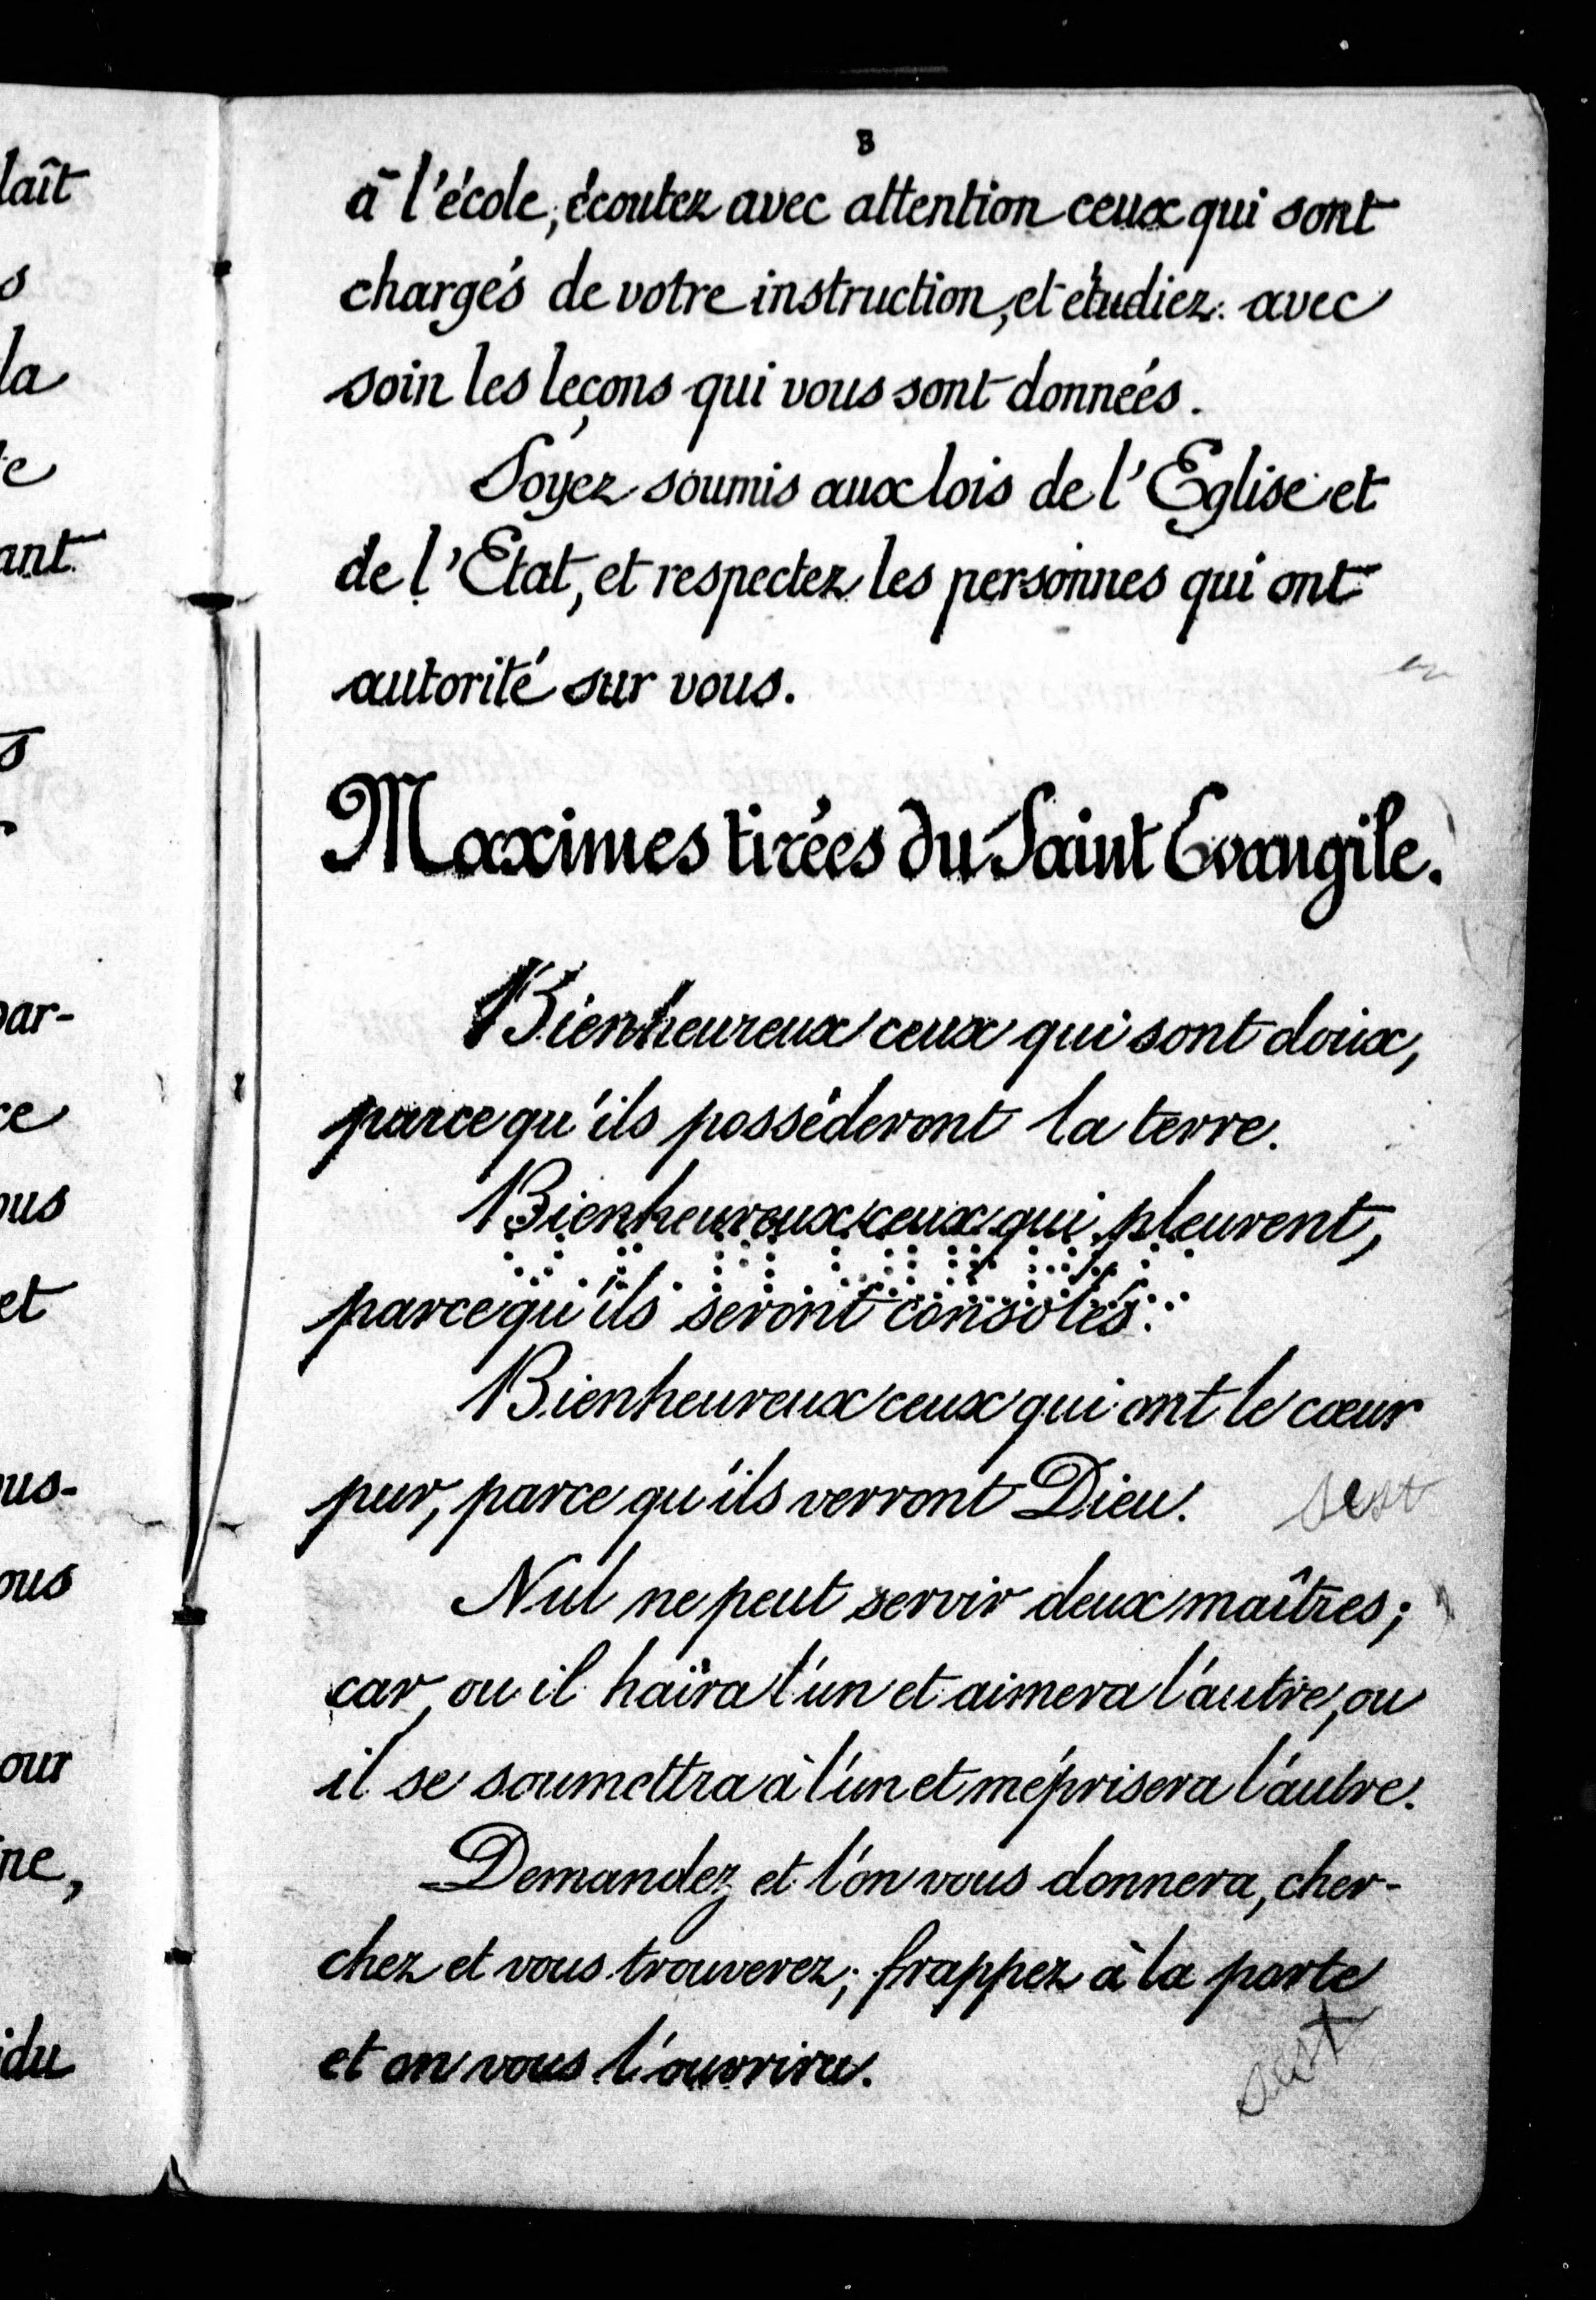 laît
s
la
ant
s
par-
ce
ous
et
ous
our
ne,
idu
à l'école, écoutez avec attention ceux qui sont
chargés de votre instruction, et étudiez avec
soin les leçons qui vous sont données.
Soyez soumis aux lois de l'Eglise et
de l'Etat, et respectez les personnes qui ont
autorité sur vous.
Maximes tirées du Saint Evangile.
Bienheureux ceux qui sont doux,
parce qu'ils posséderont la terre.
Bienheureux ceux qui pleurent,
parce qu'ils seront consolés.
Bienheureux ceux qui ont le cœur
pur, parce qu'ils verront Dieu.
Nul ne peut servir deux maîtres;
car, ou il haïra l'un et aimera l'autre, ou
il se soumettra à l'un et méprisera l'autre.
Demandez et l'on vous donnera, cher-
chez et vous trouverez; frappez à la porte
et on vous l'ouvrira.